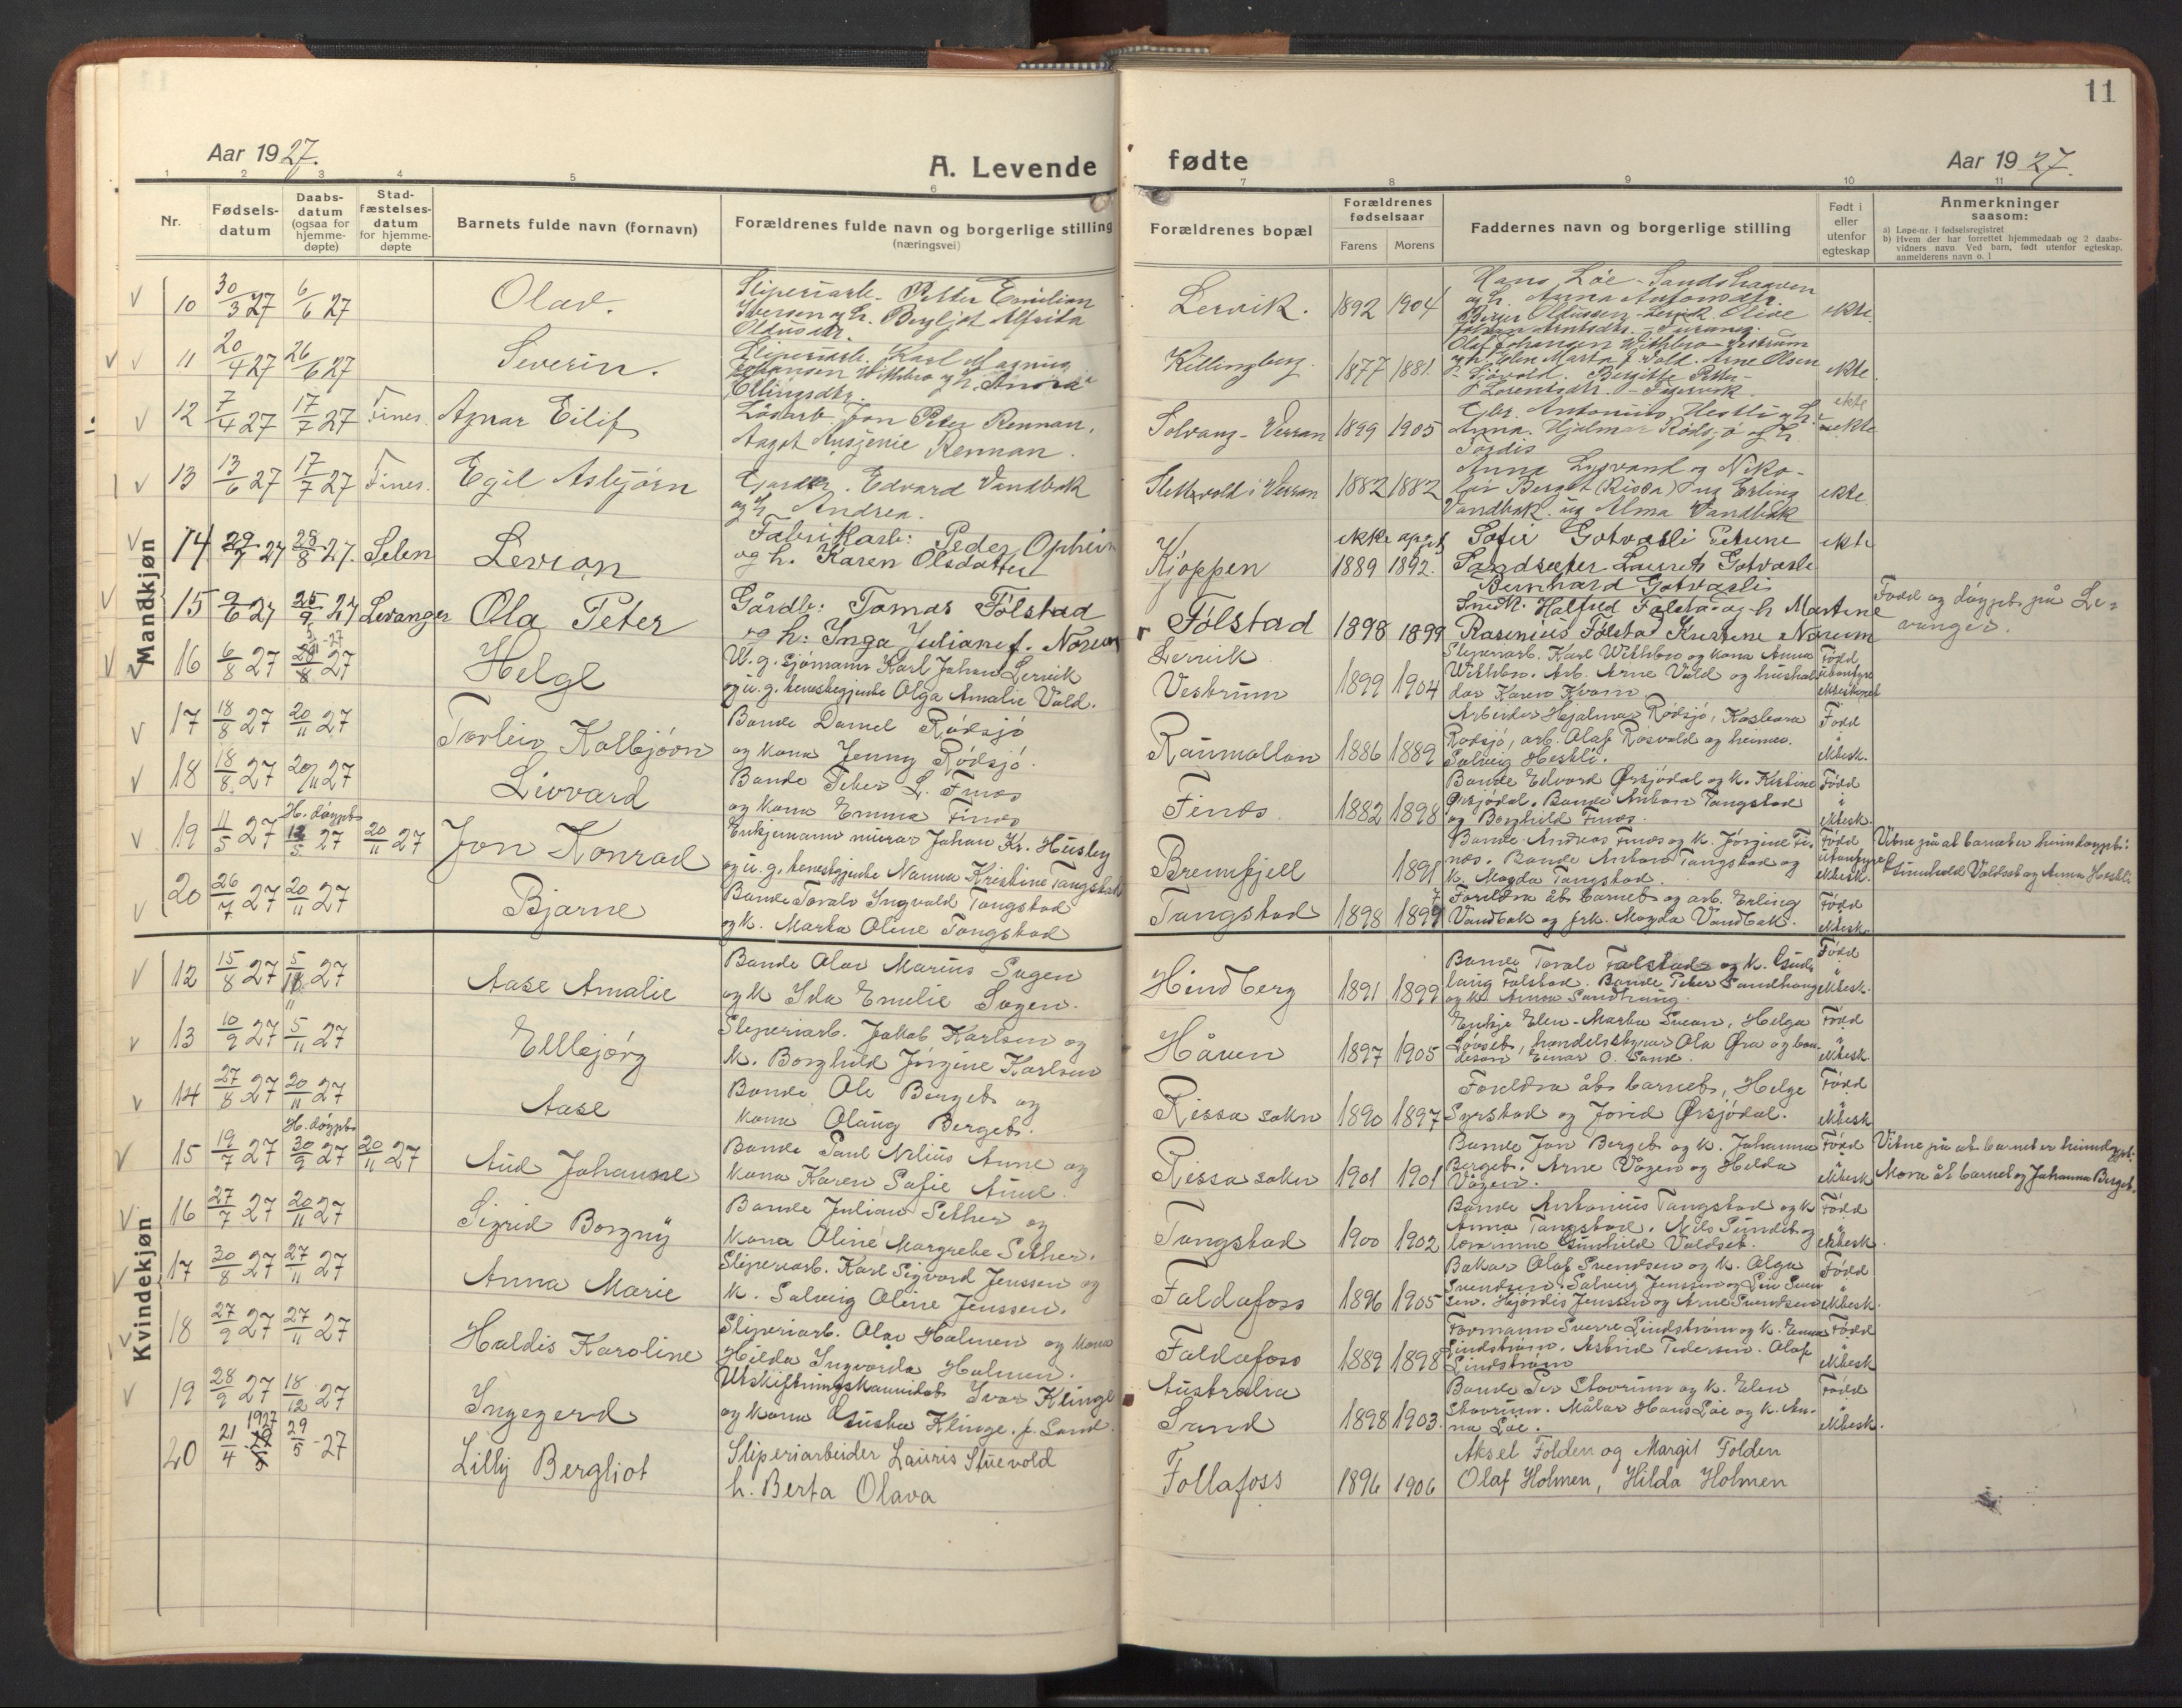 11
Aar 1927.
A. Levende fødte
Aar 1927.
1 2 3 4 5 6 7 8 9 10 11
Nr.
Fødsels-datum
Daabs-datum (ogsaa for hjemme-døpte)
Stad-fæstelses-datum for hjemme-døpte
Barnets fulde navn (fornavn)
Forældrenes fulde navn og borgerlige stilling (næringsvei)
Forældrenes bopæl
Forældrenes fødselsaar
Farens Morens
Faddernes navn og borgerlige stilling
Født i eller utenfor egteskap
Anmerkninger saasom:
a) Løpe-nr. i fødselsregistret
b) Hvem der har forrettet hjemmedaab og 2 daabs-vidners navn. Ved barn, født utenfor egteskap, anmelderens navn o. l
Mandkjøn
10 30/3 27 6/6 27 Olav. Sliperiarb. Petter Emilian
Iversen og h. Bergljot Alfrida
Oldusdtr.
Lervik. 1892 1904 Hans Løe - Sandshaugen
og h. Anna Antonsdtr.
Birger Oldussen - Lervik. Olive
ekte.
11 20/4 27 26/6 27 Severin. Sliperiarb. Karl Magnus
Johansen Withbro og h. Anna
Ellingsdtr.
Killingberg. 1877 1881. Olaf Johansen Withbro Vestrum
og h. Elen Marta f. Vold. Arne Olsen
Sjøvold. Bergitte Petter-
ekte
12 7/4 27 17/7 27 Fines. Agnar Eilif Løsarb. Jon Peter Rennan.
Aagot Ansjenie Rennan.
Solvang - Verran 1899 1905 Gbr. Antonius Hestli og h.
Anna. Hjalmar Rødsjø og h.
Tordis
ekte
13 13/6 27 17/7 27 Fines. Egil Asbjørn Gjarder. Edvard Vandbak
og h. Andrea.
Slettevold i Verran 1882 1882 Anna Lysvand og Niko-
lai Berget (Rissa) og Erling
Vandbak. og Alma Vandbak
ekte
14 29/7 27 28/8 27. Selen Levran Fabrikarb: Peder Opheim
og h. Karen Olsdatter
Kjøppen 1889 1892. Sofie Gotvasli Petrine
Sandsæter Laurits Gotvasli
Bernhard Gotvasli
ekte
15 9/6 27 25/9 27 Levanger Ola Peter Gårdbr: Tomas Følstad
og h: Inga Juliane f. Norum
Følstad 1898 1899 Snedk. Halfred Følstad og h Martine
Rasenius Følstad Kristine Norum
Fødd og døypt på Le-
vanger.
16 6/8 27 Helge U. g. sjømann Karl Johan Lervik
og u. g. tenestegjente Olga Amalie Vold.
Lervik
Vestrum 1899 1904 Sliperiarb. Karl Withbro og kona Anna
Withbro. Arb. Arne Vold og hushal-
dar Karen Kvam
Fødd utanfyre ekteskapet
17 18/8 27 20/11 27 Torleiv Kolbjørn Bonde Daniel Rødsjø
og kona Jenny Rødsjø.
Raumollan 1886 1889 Arbeidar Hjalmar Rødsjø, Kaspara
Rødsjø, arb. Olaf Rosvold og heimev.
Solveig Hestli.
Fødd i ektesk.
18 18/8 27 20/11 27 Livvard Bonde Peter L. Finæs
og kona Emma Finæs
Finæs 1882 1898 Bonde Edvard Ørsjødal og k. Kristine
Ørsjødal. Bonde Anton Tangstad
og Borghild Finæs.
Fødd i ektesk.
19 11/5 27 H. døypt 12/5 27 20/11 27 Jon Konrad Enkjemann murar Johan Kr. Husby
og u. g. tenestgjente Nanna Kristine Tangstad
Bremfjell 1891 Bonde Andreas Finæs og k. Jørgine Fi-
næs. Bonde Anton Tangstad og
k. Magda Tangstad.
Fødd utanfyre ektesk.
Vitne på at barnet er heimdøypt:
Gunhild Valdset og Anna Hestli
20 26/7 27 20/11 27 Bjarne Bonde Toralv Ingvald Tangstad
og k. Marta Oline Tangstad
Tangstad 1898 1899 Foreldra åt barnet og arb. Erling
Vandbak og frk. Magda Vandbak.
Fødd i ektesk.
Kvindekjøn
12 15/8 27 5/11 27 Aase Amalie Bonde Olav Marius Sagen
og k. Ida Emelie Sagen.
Hindberg 1891 1899 Bonde Toralv Falstad og k. Gud-
laug Falstad. Bonde Peter Sandhaug
og k. Anna Sandhaug.
Fødd i ektesk.
13 10/9 27 5/11 27 Ellbjørg Sliperiarb. Jakob Karlsen og
k. Borghild Jørgine Karlsen
Håven 1897 1905 Enkje Elen-Marta Svean, Helga
Løvset, handelsstyrar Ola Øra og bon-
deson Einar O. Sand.
Fødd i ektesk.
14 27/8 27 20/11 27 Aase Bonde Ole Berget og
kona Olaug Berget.
Rissa sokn 1890 1897 Foreldra åt barnet, Helge
Syrstad og Jorid Ørsjødal.
Fødd i ektesk
15 19/7 27 H. døypt 30/9 27 20/11 27 Aud Johanne Bonde Paul Nilius Aune og
kona Karen Sofie Aune.
Rissa sokn 1901 1901 Bonde Jon Berget og k. Johanna
Berget. Arne Vågen og Helda
Vågen.
Fødd i ektesk
Vitne på at barnet er heimdøypt.
Mora åt barnet og Johanna Berget.
16 27/7 27 20/11 27 Sigrid Borgny Bonde Julian Sether og
kona Oline Margrete Sether.
Tangstad 1900 1902 Bonde Antonius Tangstad og k
Anna Tangstad. Nils Sundet og
lærarinne Gunhild Valdset.
Fødd i ektesk.
17 30/8 27 27/11 27 Anna Marie Sliperiarb. Karl Sigvard Jenssen og
k. Solveig Oline Jenssen.
Faldafoss 1896 1905 Bakar Olaf Svendsen og k. Olga
Svendsen. Solveig Jenssen og Liv Sven
sen. Hjørdis Jenssen og Arne Svendsen
Fødd i ektesk.
18 27/9 27 27/11 27 Haldis Karoline Sliperiarb. Olav Holmen og kona
Hilda Ingvarda Holmen.
Faldafoss 1889 1898 Formann Sverre Lindstrøm og k. Emma
Lindstrøm. Astrid Pedersen. Olaf
Lindstrøm
Fødd i ektesk
19 28/9 27 18/12 27 Ingegerd Utskiftningskandidat Ivar Klinge
og kona Gusta Klinge f. Sand.
Australia
Sand 1898 1903. Bonde Per Stavrum og k. Elen
Stavrum. Målar Hans Løe og k. An-
na Løe.
Fødd i ektesk.
20 21/4 1927 29/5 - 27 Lilly Bergliot Sliperiarbeider Lauris Stuevold
h. Berta Olava
Follafoss 1896 1906 Aksel Folden og Margit Folden
Olaf Holmen, Hilda Holmen